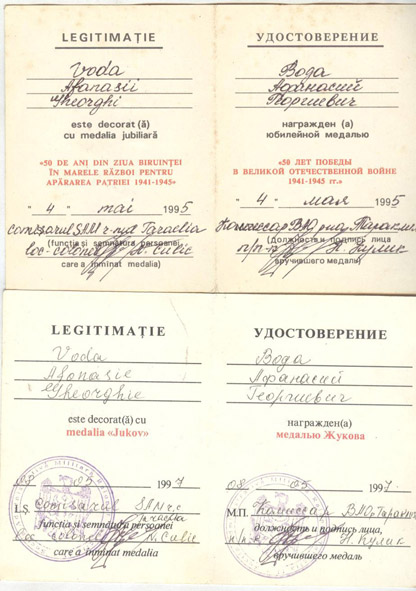 LEGITIMAȚIE
Voda
Afanasii
Gheorghi
este decorat(ă)
cu medalia jubiliară
«50 DE ANI DIN ZIUA BIRUINȚEI
ÎN MARELE RĂZBOI PENTRU
APĂRAREA PATRIEI 1941-1945»
"4" mai 1995
comisarul
(funcția și semnătura persoanei
loc-colonel N. Culic
care a înmînat medalia)
УДОСТОВЕРЕНИЕ
Вода
Афанасий
Георгиевич
награжден (а)
юбилейной медалью
«50 ЛЕТ ПОБЕДЫ
В ВЕЛИКОЙ ОТЕЧЕСТВЕННОЙ ВОЙНЕ
1941-1945 гг.»
"4" мая 1995
Комиссар
(должность и подпись лица
п/п-к Н. Кулик
вручившего медаль)
LEGITIMAȚIE
Voda
Afanasie
Gheorghie
este decorat(ă) cu
medalia «Jukov»
08 05 1997
L.Ș. Comisarul
funcția și semnătura persoanei
loc colonel N. Culic
care a înmînat medalia
УДОСТОВЕРЕНИЕ
Вода
Афанасий
Георгиевич
награжден(а)
медалью Жукова
08 05 1997.
М.П. Комиссар
должность и подпись лица,
п/п-к Н. Кулик
вручившего медаль